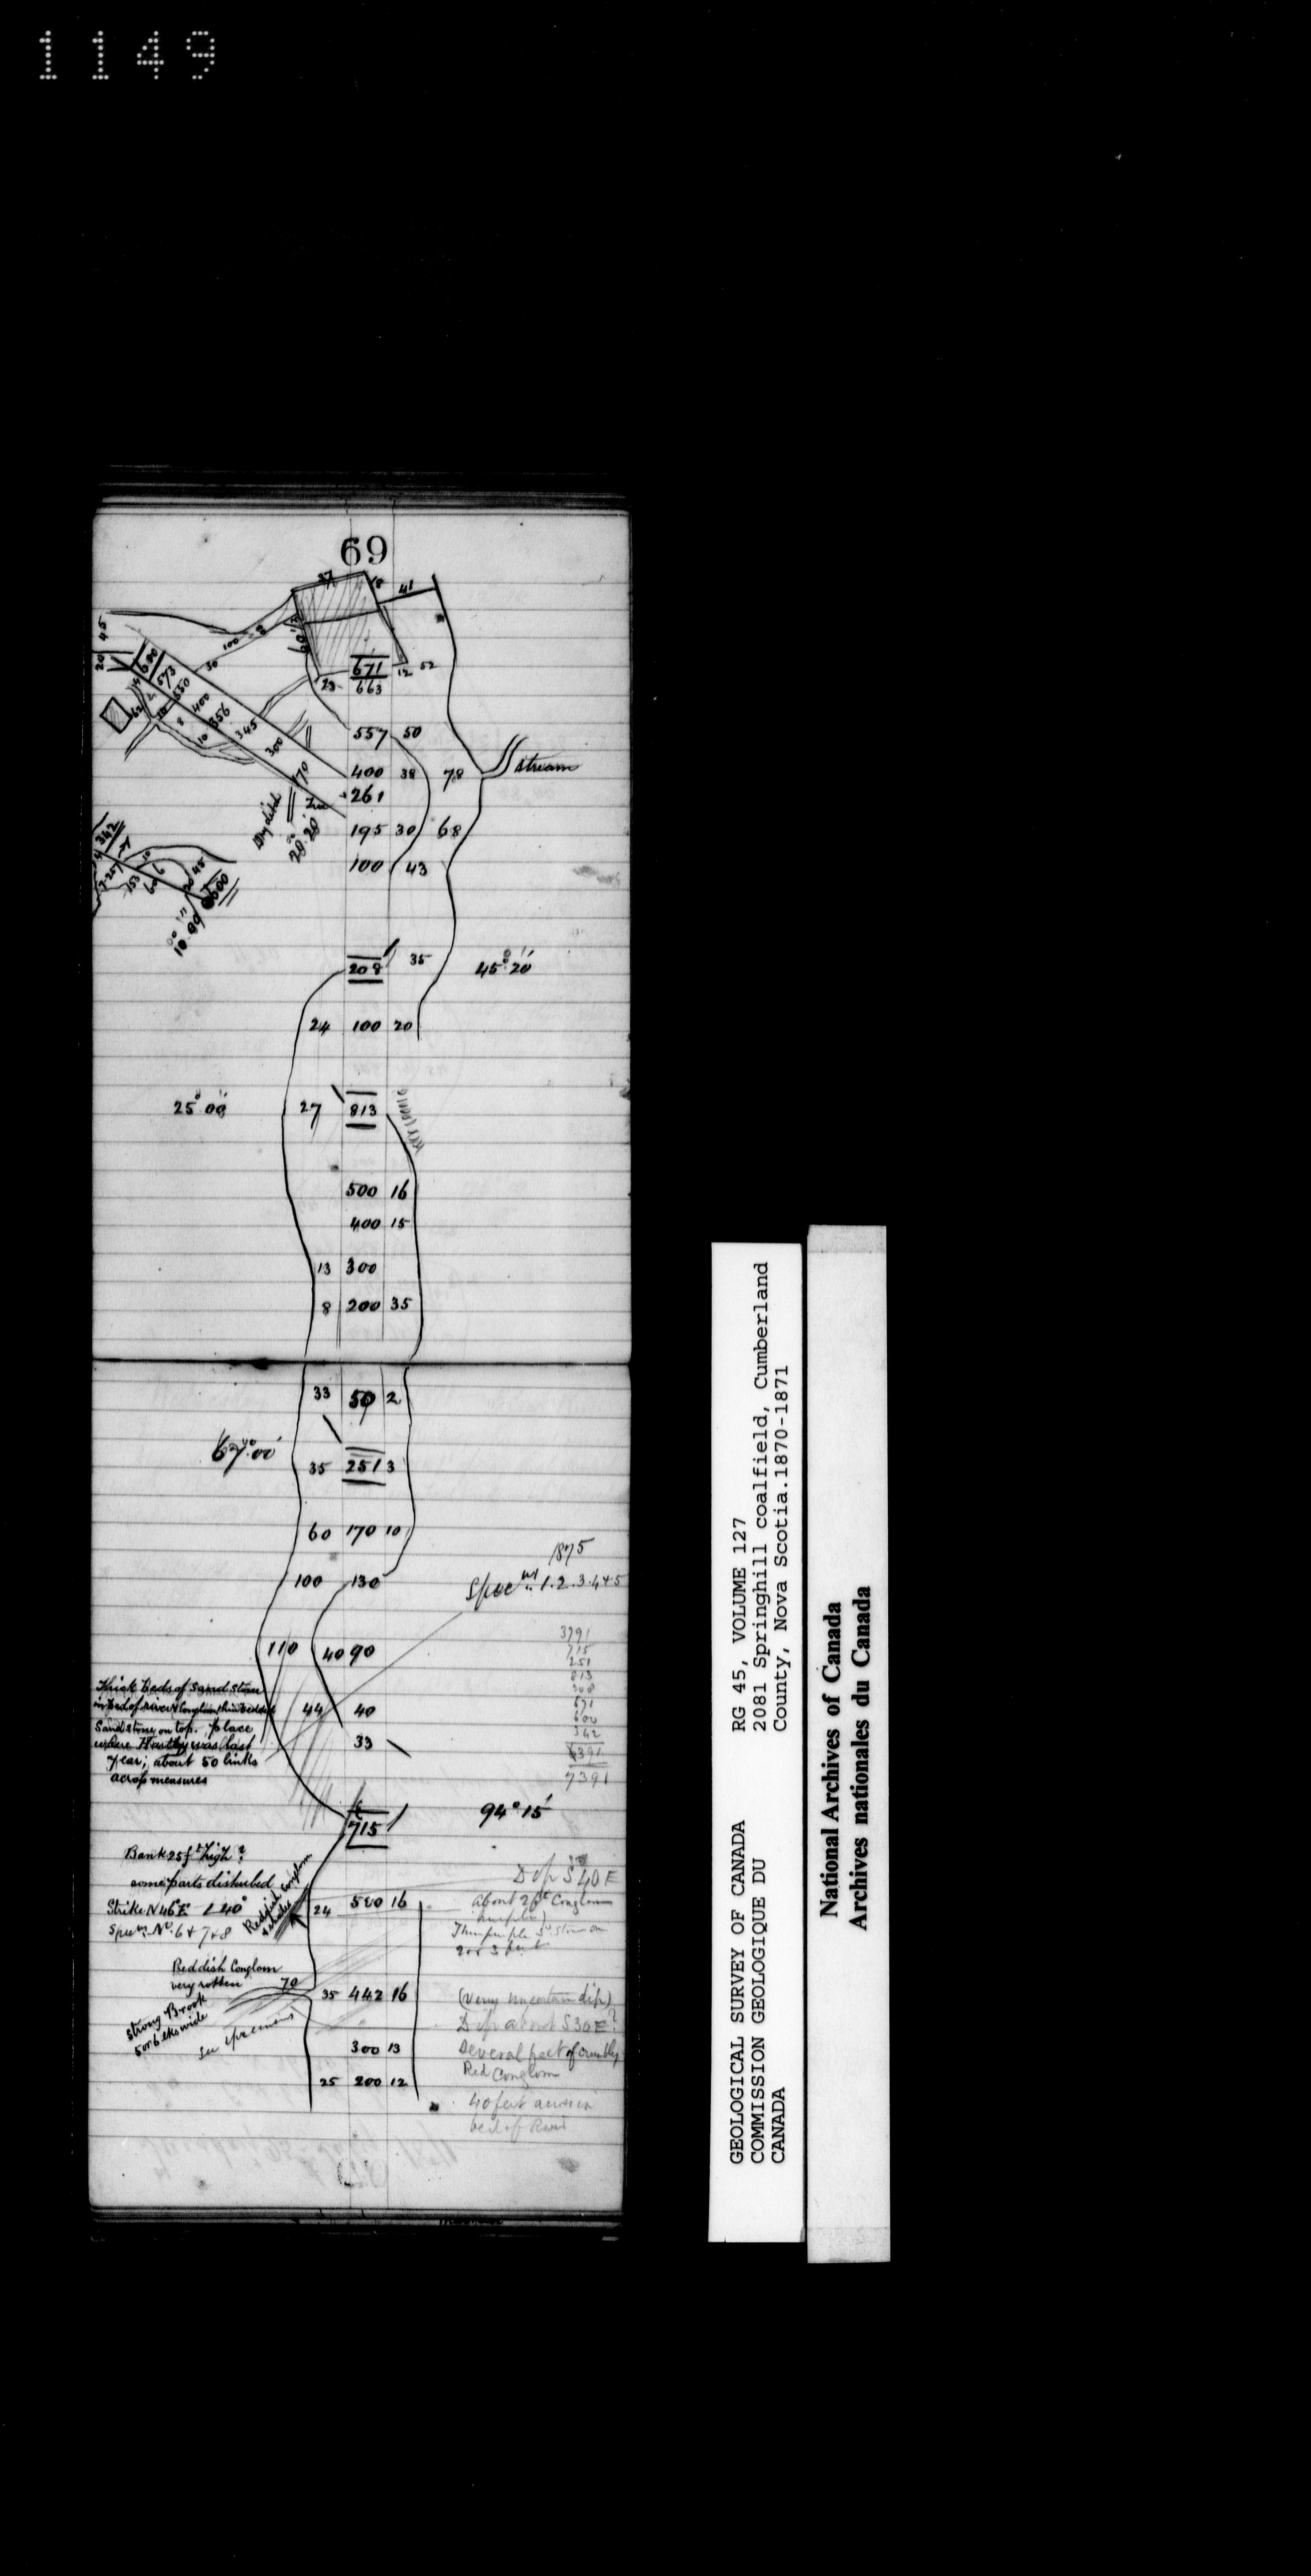 1149
69
37 18 41
45 60 13
100 8
30
20
680
573
671 12 52
663
23
14 2 550
62 10 400
8 356
10 345
300
557 50
170 400 38 78 stream
Dry ditch
261
20°20'
195 30 68
100 43
342
7.257 10
153 6
60 45
20
600
10°00'
208 35 45°20'
24 100 20
25°00' 27 813
500 16
400 15
13 300
8 200 35
33 50 2
67°00'
35 251 3
60 170 10
1875
100 130 Specns 1.2.3.4+5
3791
715
251
813
208
671
600
342
7391
110 40 90
Thick beds of Sand Stone
in bed of river & Conglom, thin bedded
44 40
Sandstone on top. place
where Hartley was last
33
year; about 50 links
across measures
715 94°15'
Bank 25 ft high?
some parts disturbed
Reddish Conglom
& shales
Dip S 40 E
Strike N46°E L 40° 24 580 16
about 2 ft Conglom
Specns. No. 6+7+8
purple)
Thin purple Sd Stone on
2 or 3 feet
Reddish Conglom
very rotten 70
35 442 16 (Very uncertain dip)
Strong Brook
5 or 6 lks wide
see specimens
Dip about S30E?
300 13 Several feet of crumbly
Red Conglom
25 200 12
40 feet across in
bed of River
GEOLOGICAL SURVEY OF CANADA
COMMISSION GEOLOGIQUE DU
CANADA
RG 45, VOLUME 127
2081 Springhill coalfield, Cumberland
County, Nova Scotia.1870-1871
National Archives of Canada
Archives nationales du Canada